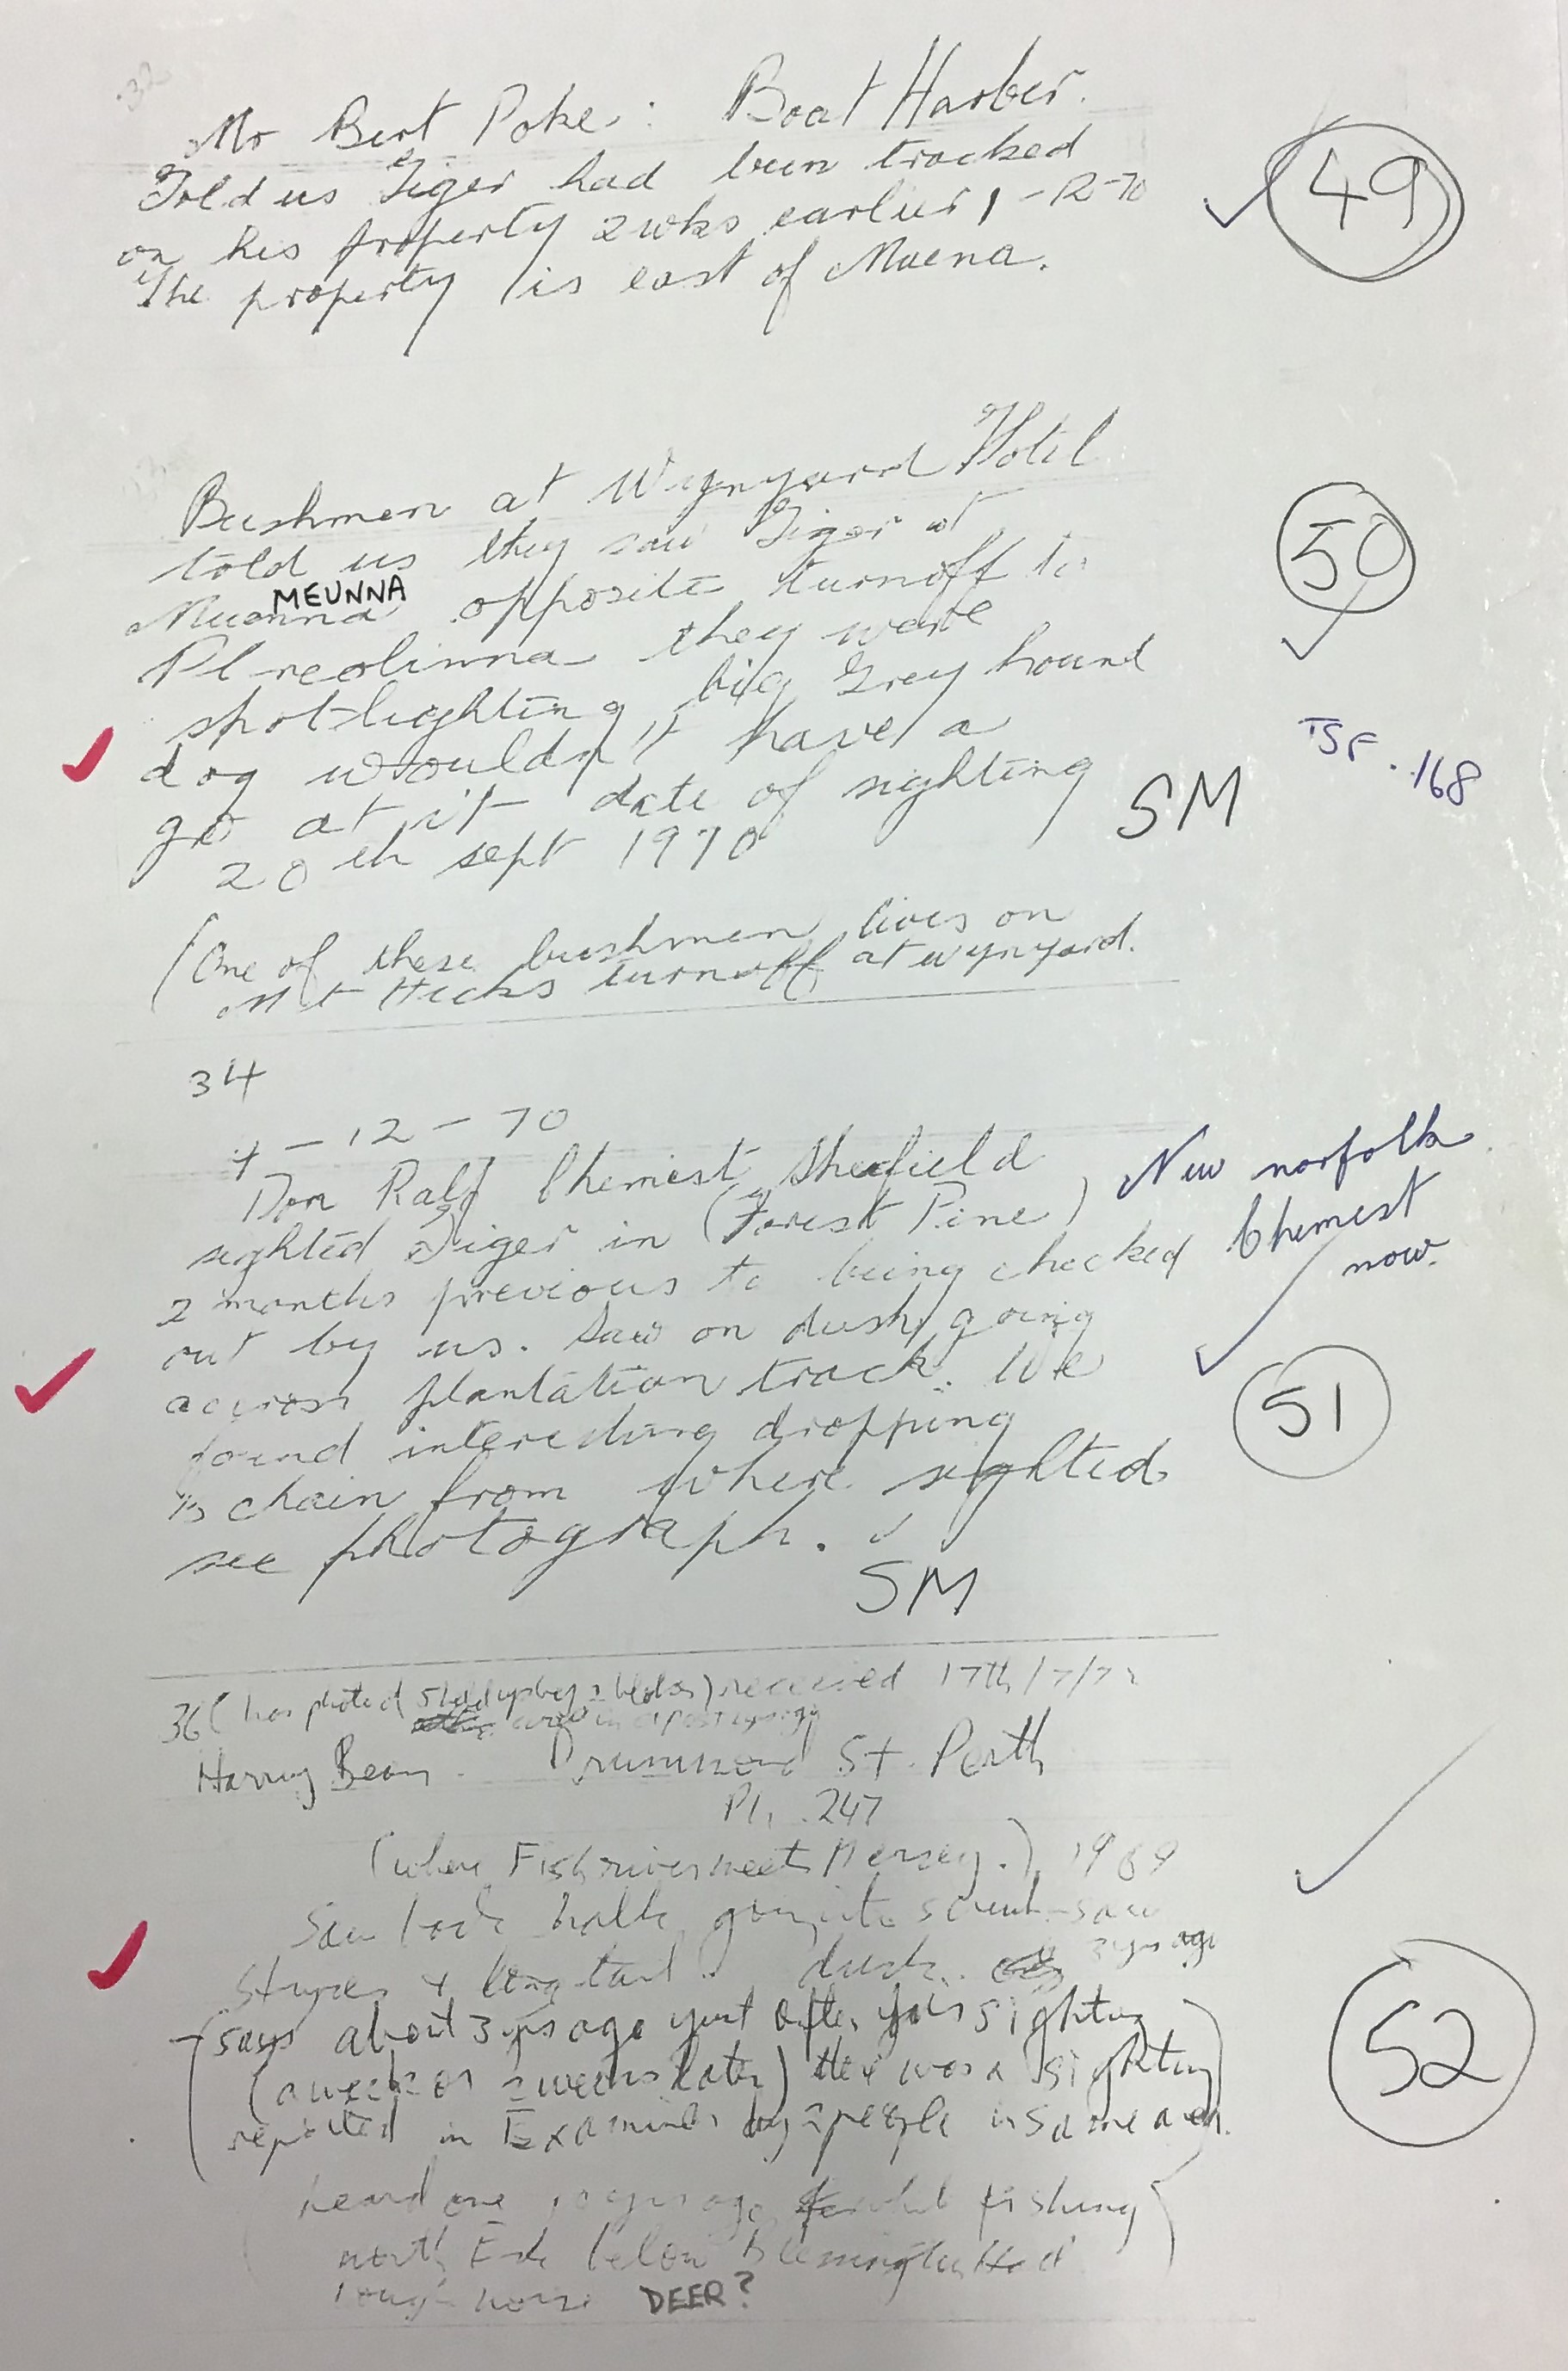 32
Mr Bert Poke : Boat Harber.
Told us Tiger had been tracked
on his property 2 wks earlier 1-12-70
The property is east of Muena.
49
Bushmen at Wynyard Hotel
told us they saw Tiger at
MEUNNA
Muenna opposite turnoff to
they were
spotlighting big Grey hound
dog wouldn't have a
go at it date of sighting
20th sept 1970
SM
50
TSF. 168
(One of these bushmen lives on
Mt Hicks turnoff at wynyard.
34
4-12-70
Don Ralf Chemist Sheffield
sighted Tiger in (Forest Pine)
2 months previous to being checked
out by us. Saw on dusk going
across plantation track. We
found interesting dropping
chain from where sighted
see photograph.
SM
New norfolk
Chemest
now.
51
36 (has photo of received 17th/7/72
Harry Bean. Drummond St. Perth
Ph. 247
(where Fish river meets Mersey.) 1969
Saw back half going into scrub - saw
stripes & long tail. dusk. 3 yrs ago
(says about 3 yrs ago just after his sighting
(a week or 2 weeks later) there was a sighting
reported in Examiner by 2 people in same area.
heard one yrs ago while fishing
north Esk below
noise DEER?
52